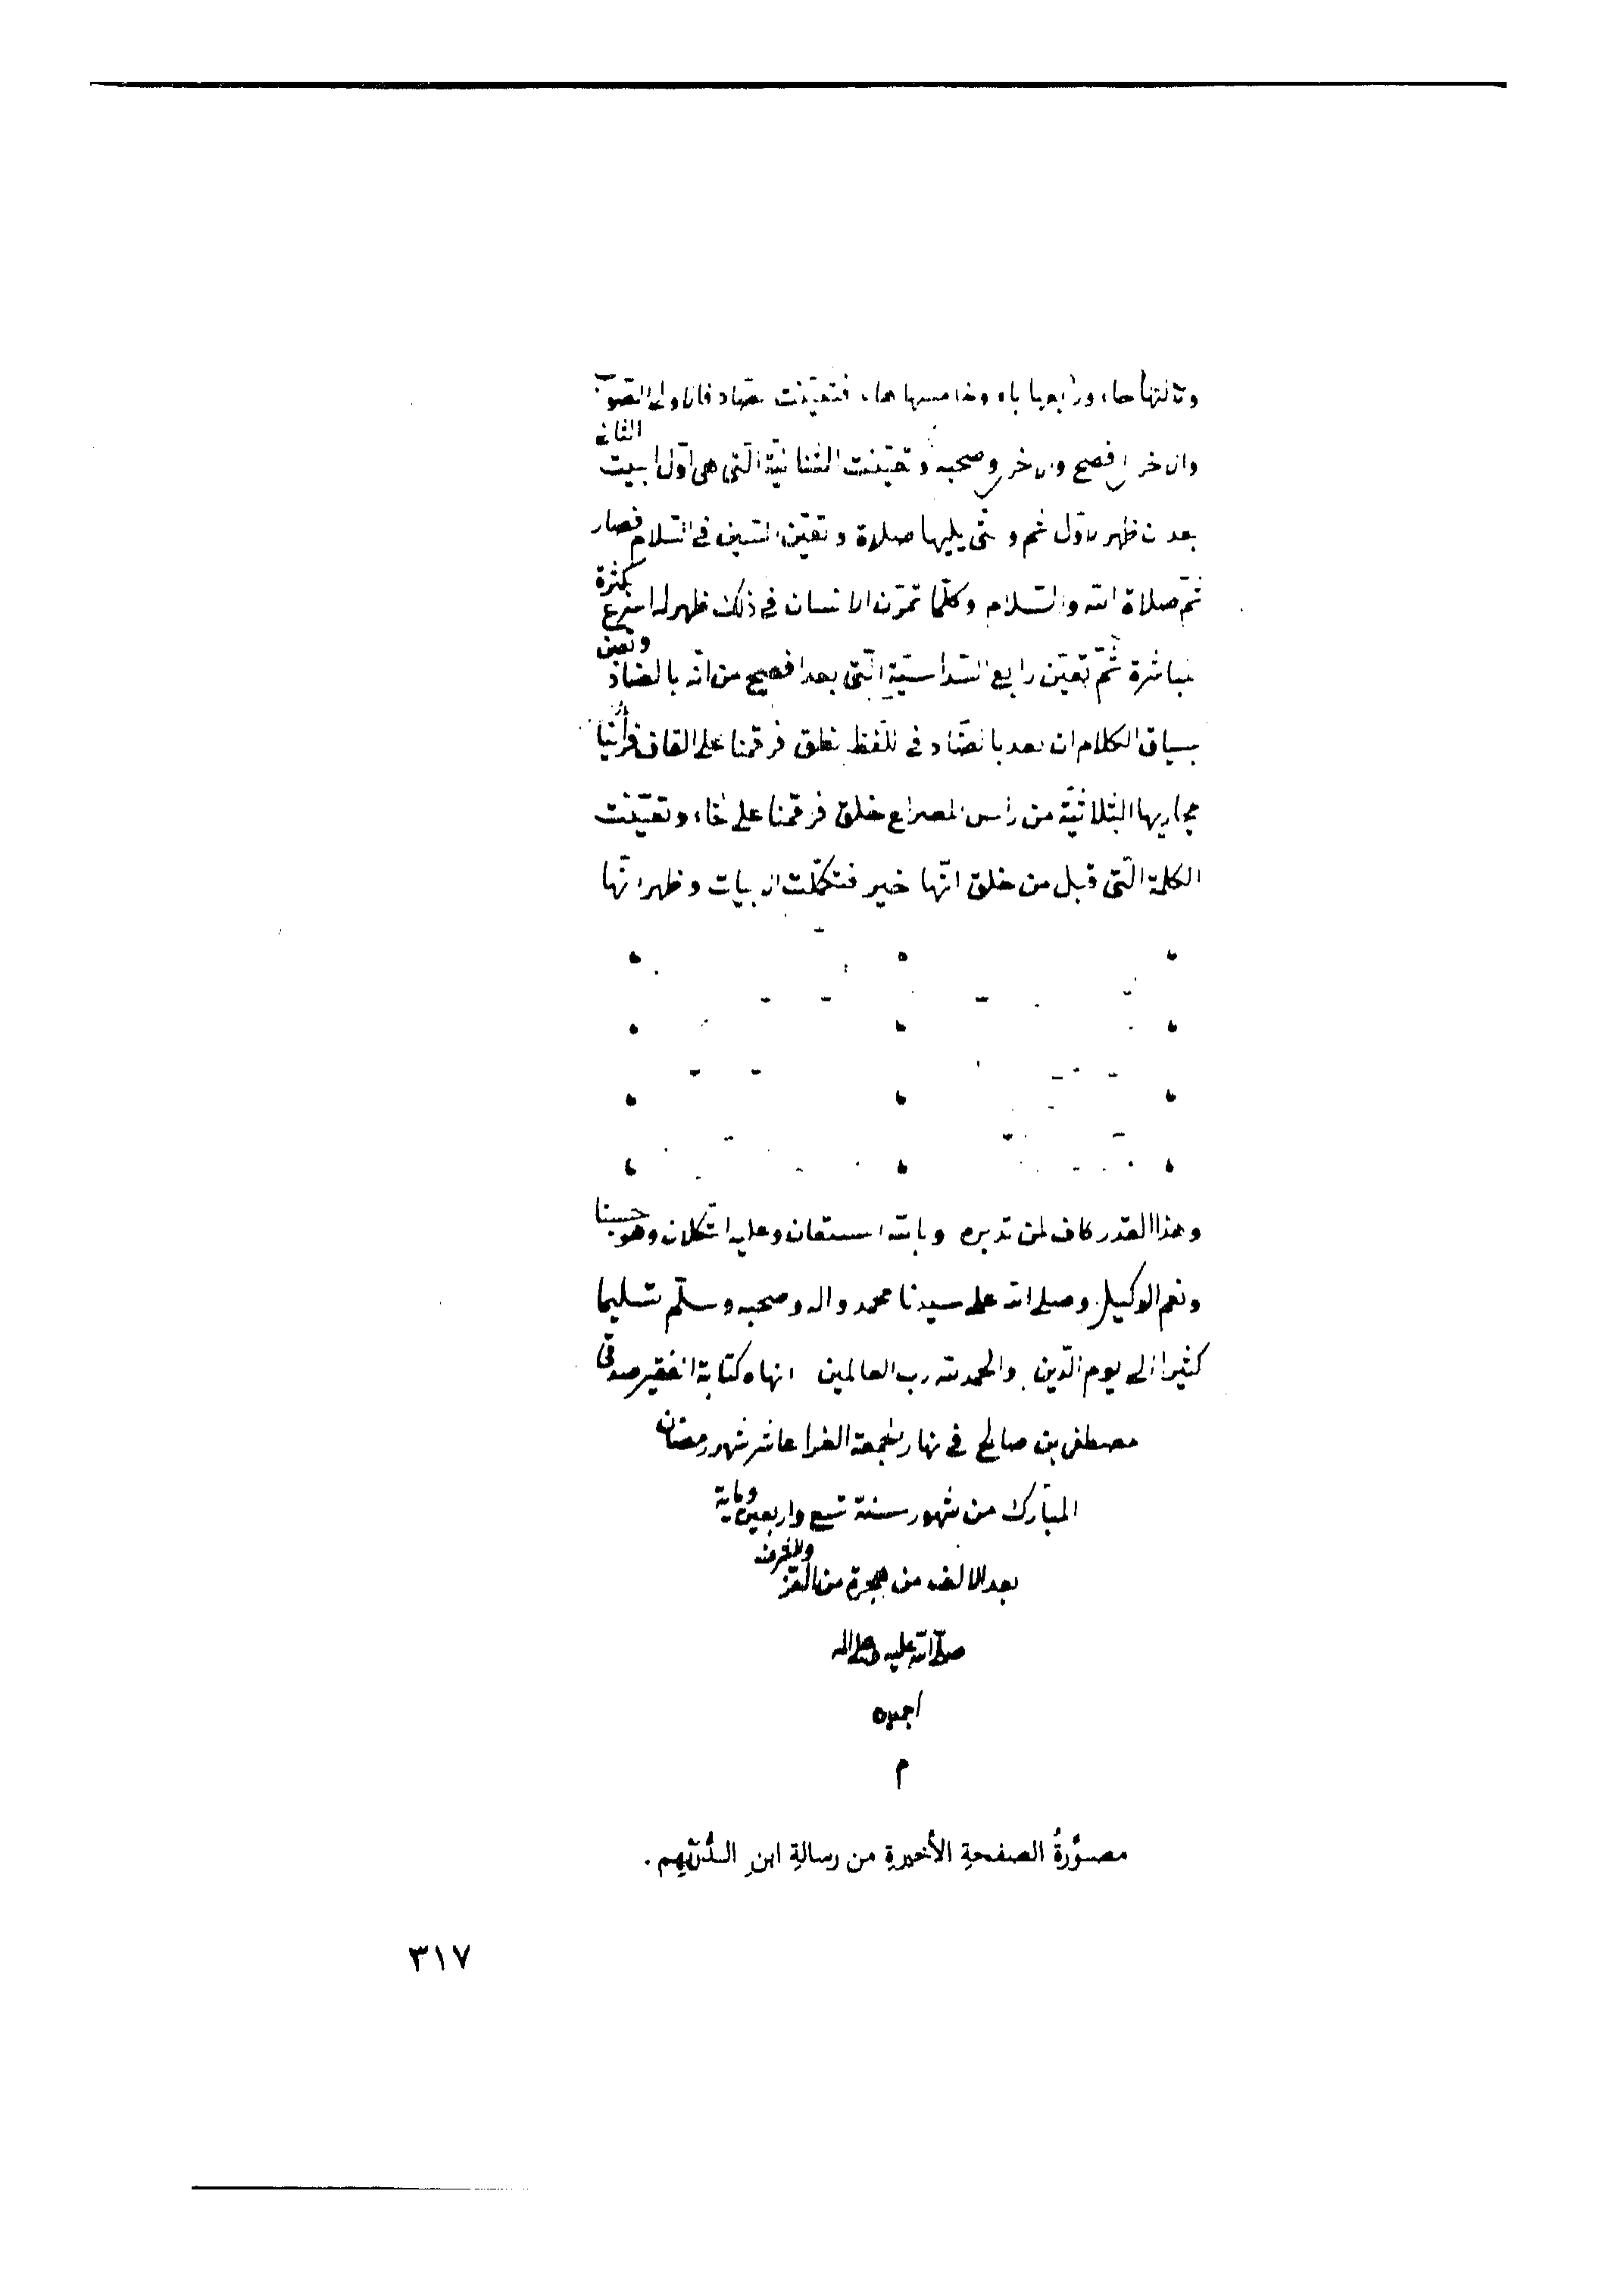 وثالثها حاء ورابعها باء وخامسها هاء فتعينت الضاد فالاولى الصواب
والاخر افصح والاخر وصحبه وتعينت الثنائية التي هي اول البيت الثاني
بعد ان ظهر الاول ثم وحتى يليها صلاة وتعين السين في السلام فصار
ثم صلاة الله والسلام وكلما تمرن الانسان في ذلك ظهر له اسرع بكثرة
مباشرة ثم تعين رابع السداسية التي بعد افصح من انه بالضاد وتعين
بسياق الكلام ان بعد بالضاد في اللفظ نطق فرقمنا على القاف فرأينا
مجاريها الثلاثية من رأس المصراع خلق فرقمنا على الخاء وتعينت
الكلمة التي قبل من خلق انها خير فتكملت الابيات وظهر انها
وهذا القدر كاف لمن تدبره وبالله المستعان وعليه التكلان وهو حسبنا
ونعم الوكيل وصلى الله على سيدنا محمد واله وصحبه وسلم تسليما
كثيرا الى يوم الدين والحمد لله رب العالمين انهاه كتابة الفقير صدقي
مصطفى بن صالح في نهار الجمعة الغرا عاشر شهر رمضان
المبارك من شهور سنة تسع واربعين وماية
بعد الالف من هجرة من له العز والشرف
صلى الله عليه وعلى اله
اجمعين
م
مصوَّرةُ الصفحةِ الأخيرةِ من رسالةِ ابنِ الدُّرَيْهِم .
٣١٧